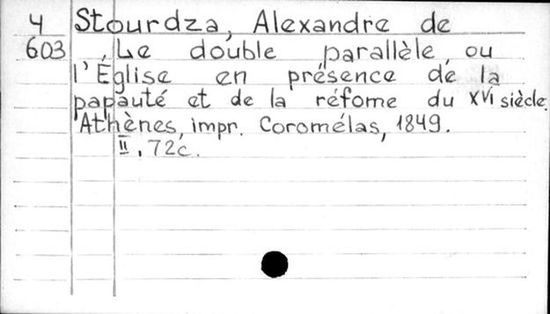 4 Stourdza, Alexandre de
603 Le double parallèle, ou
l'Église en présence de la
papauté et de la réfome du XVI siècle.
Athènes, impr. Coromélas, 1849.
II, 72c.